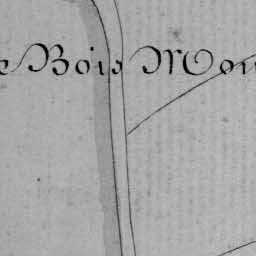 e Bois Mon